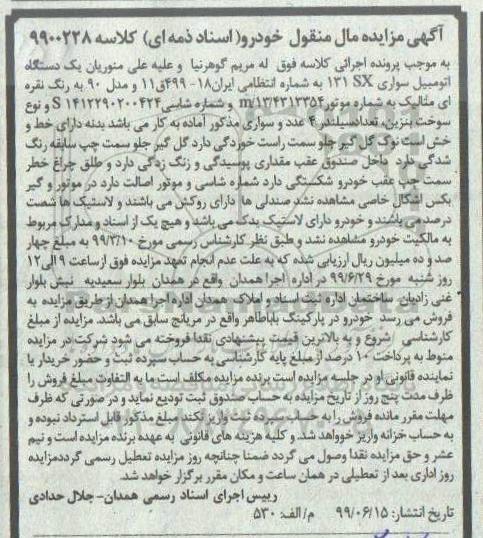 آگهی مزایده مال منقول خودرو( اسناد ذمه ای) کلاسه ۹۹۰۰۲۳۸
به موجب پرونده اجرائی کلاسه فوق له مریم گوهرنیا و علیه علی منوریان یک دستگاه
اتومبیل سواری SX ۱۳۱ به شماره انتظامی ایران۱۸- ۴۹۹ق۱۱ و مدل ۹۰ به رنگ نقره
ای متالیک به شماره موتور m/۱۳/۴۳۱۳۳۵۴ و شماره شاسی S۱۴۱۲۲۹۰۲۰۰۴۲۴ و نوع
سوخت بنزین، تعدادسیلندر ۴ عدد و سواری مذکور آماده به کار می باشد بدنه دارای خط و
خش است نوک گل گیر جلو سمت راست خوردگی دارد گل گیر جلو سمت چپ سابقه رنگ
شدگی دارد داخل صندوق عقب مقداری پوسیدگی و زنگ زدگی دارد و طلق چراغ خطر
سمت چپ عقب خودرو شکستگی دارد شماره شاسی و موتور اصالت دارد در موتور و گیر
بکس اشکال خاصی مشاهده نشد صندلی ها دارای روکش می باشند و لاستیک ها شصت
درصد می باشند و خودرو دارای لاستیک یدک می باشد و هیچ یک از اسناد و مدارک مربوط
به مالکیت خودرو مشاهده نشد و طبق نظر کارشناس رسمی مورخ ۹۹/۳/۱۰ به مبلغ چهار
صد و ده میلیون ریال ارزیابی شده که به علت عدم انجام تعهد مزایده فوق ازساعت ۹ الی۱۲
روز شنبه مورخ ۹۹/۶/۲۹ در اداره اجرا همدان واقع در همدان بلوار سعیدیه نبش بلوار
غنی زادیان ساختمان اداره ثبت اسناد و املاک همدان اداره اجرا همدان از طریق مزایده به
فروش می رسد خودرو در پارکینگ باباطاهر واقع در مریانج سابق می باشد. مزایده از مبلغ
کارشناسی شروع و به بالاترین قیمت پیشنهادی نقدا فروخته می شود شرکت در مزایده
منوط به پرداخت ۱۰ درصد از مبلغ پایه کارشناسی به حساب سپرده ثبت و حضور خریدار یا
نماینده قانونی او در جلسه مزایده است برنده مزایده مکلف است ما به التفاوت مبلغ فروش را
ظرف مدت پنج روز از تاریخ مزایده به حساب صندوق ثبت تودیع نماید و در صورتی که ظرف
مهلت مقرر مانده فروش را به حساب سپرده ثبت واریز نکند مبلغ مذکور قابل استرداد نبوده و
به حساب خزانه واریز خواهد شد. و کلیه هزینه های قانونی به عهده برنده مزایده است و نیم
عشر و حق مزایده نقدا وصول می گردد ضمنا چنانچه روز مزایده تعطیل رسمی گرددمزایده
روز اداری بعد از تعطیلی در همان ساعت و مکان مقرر برگزار خواهد شد.
رییس اجرای اسناد رسمی همدان- جلال حدادی
تاریخ انتشار: ۹۹/۰۶/۱۵ م/الف: ۵۳۰